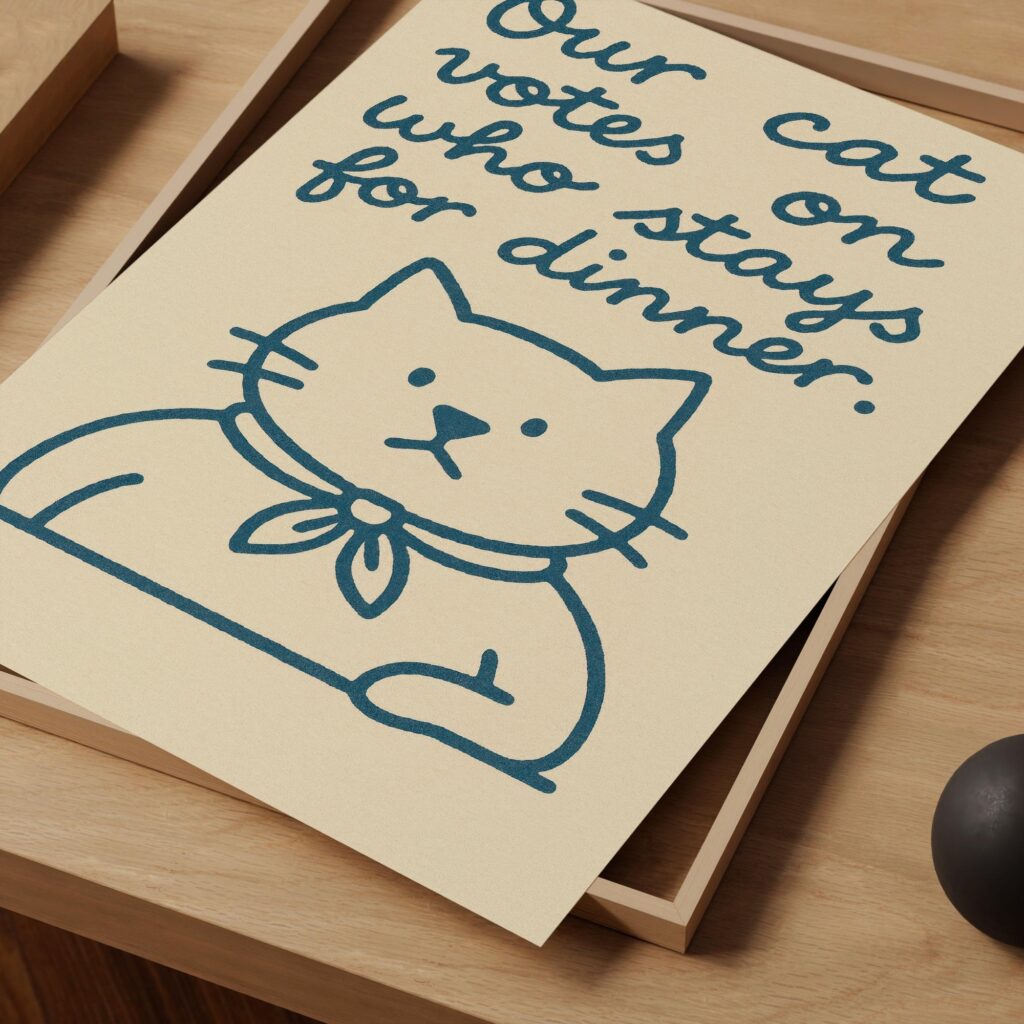 Our cat
votes on
who stays
for dinner.